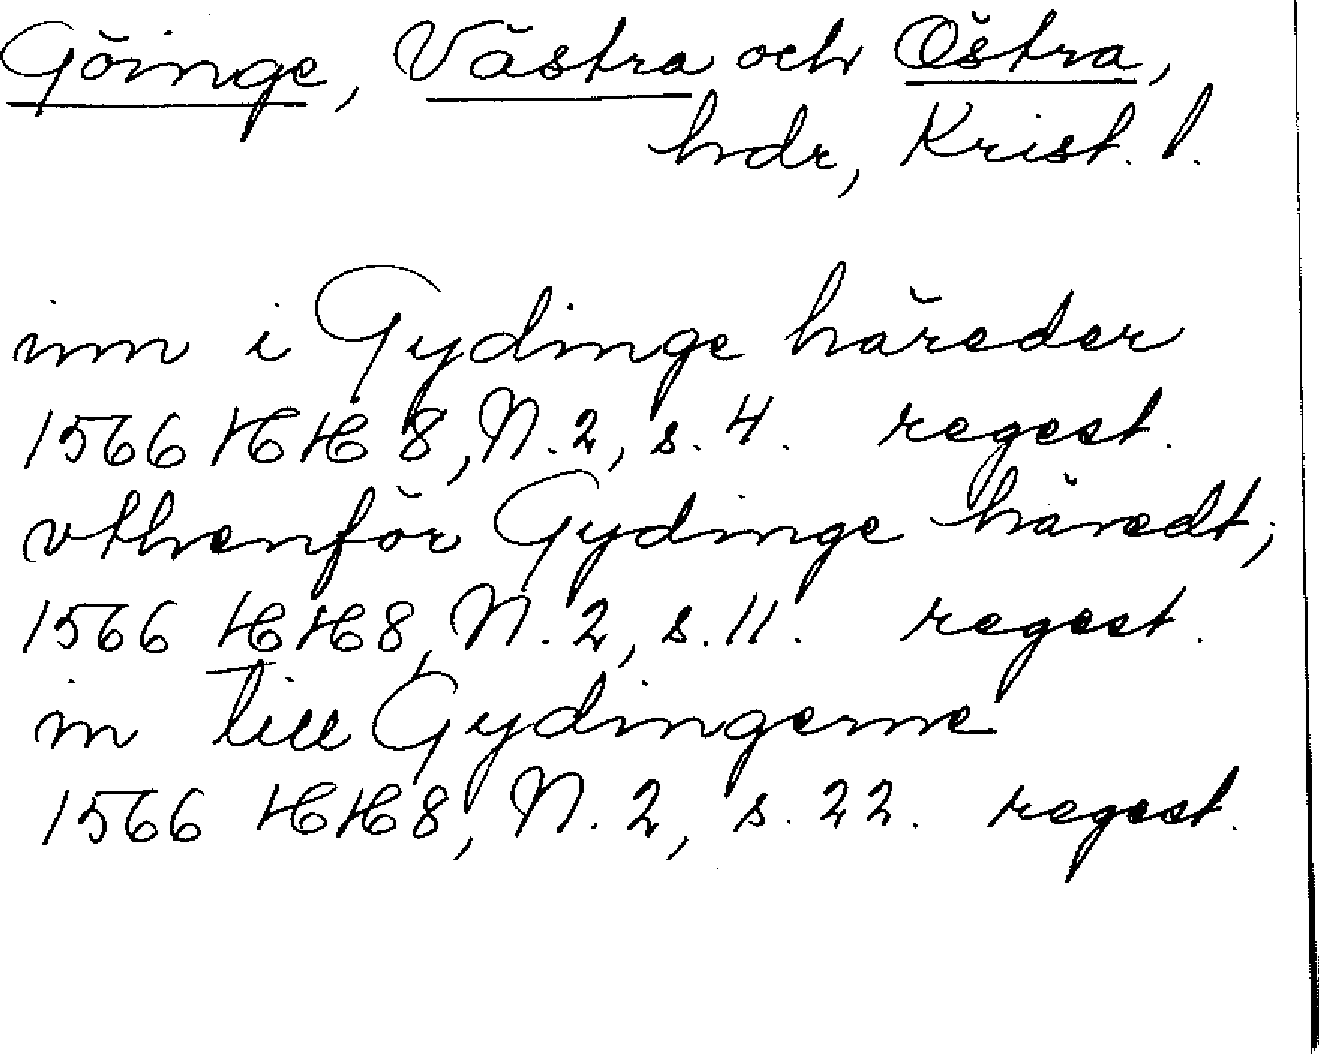 Göinge, Västra och Östra,
hdr, Krist. l.
inn i Gydinge häreder
1566 HH 8, N. 2, s. 4. regest.
vthenför Gydinge häredt;
1566 HH 8, N. 2, s. 11. regest.
in till Gydingerne
1566 HH 8, N. 2, s. 22. regest.